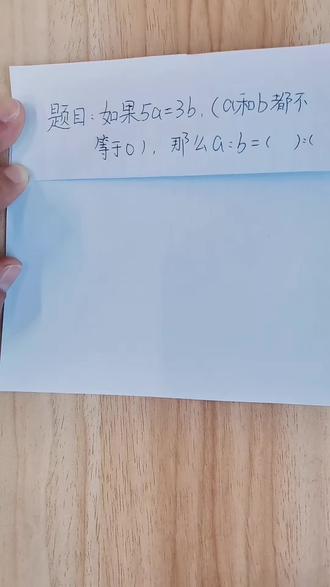 题目:如果5a=3b,(a和b都不
等于0),那么a:b=( ):(